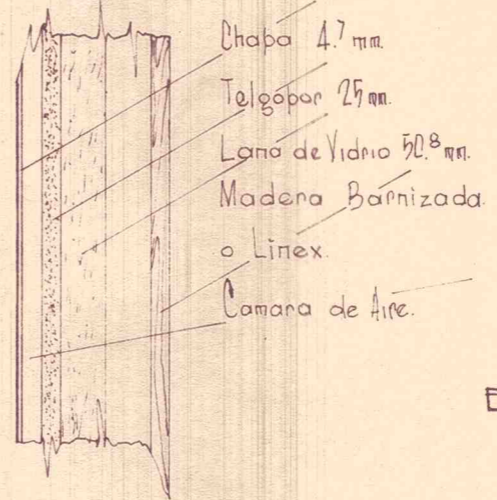 Chapa 4.7 mm.
Telgópor 25 mm.
Lana de Vidrio 50.8 mm.
Madera Barnizada
o Linex.
Camara de Aire.
E